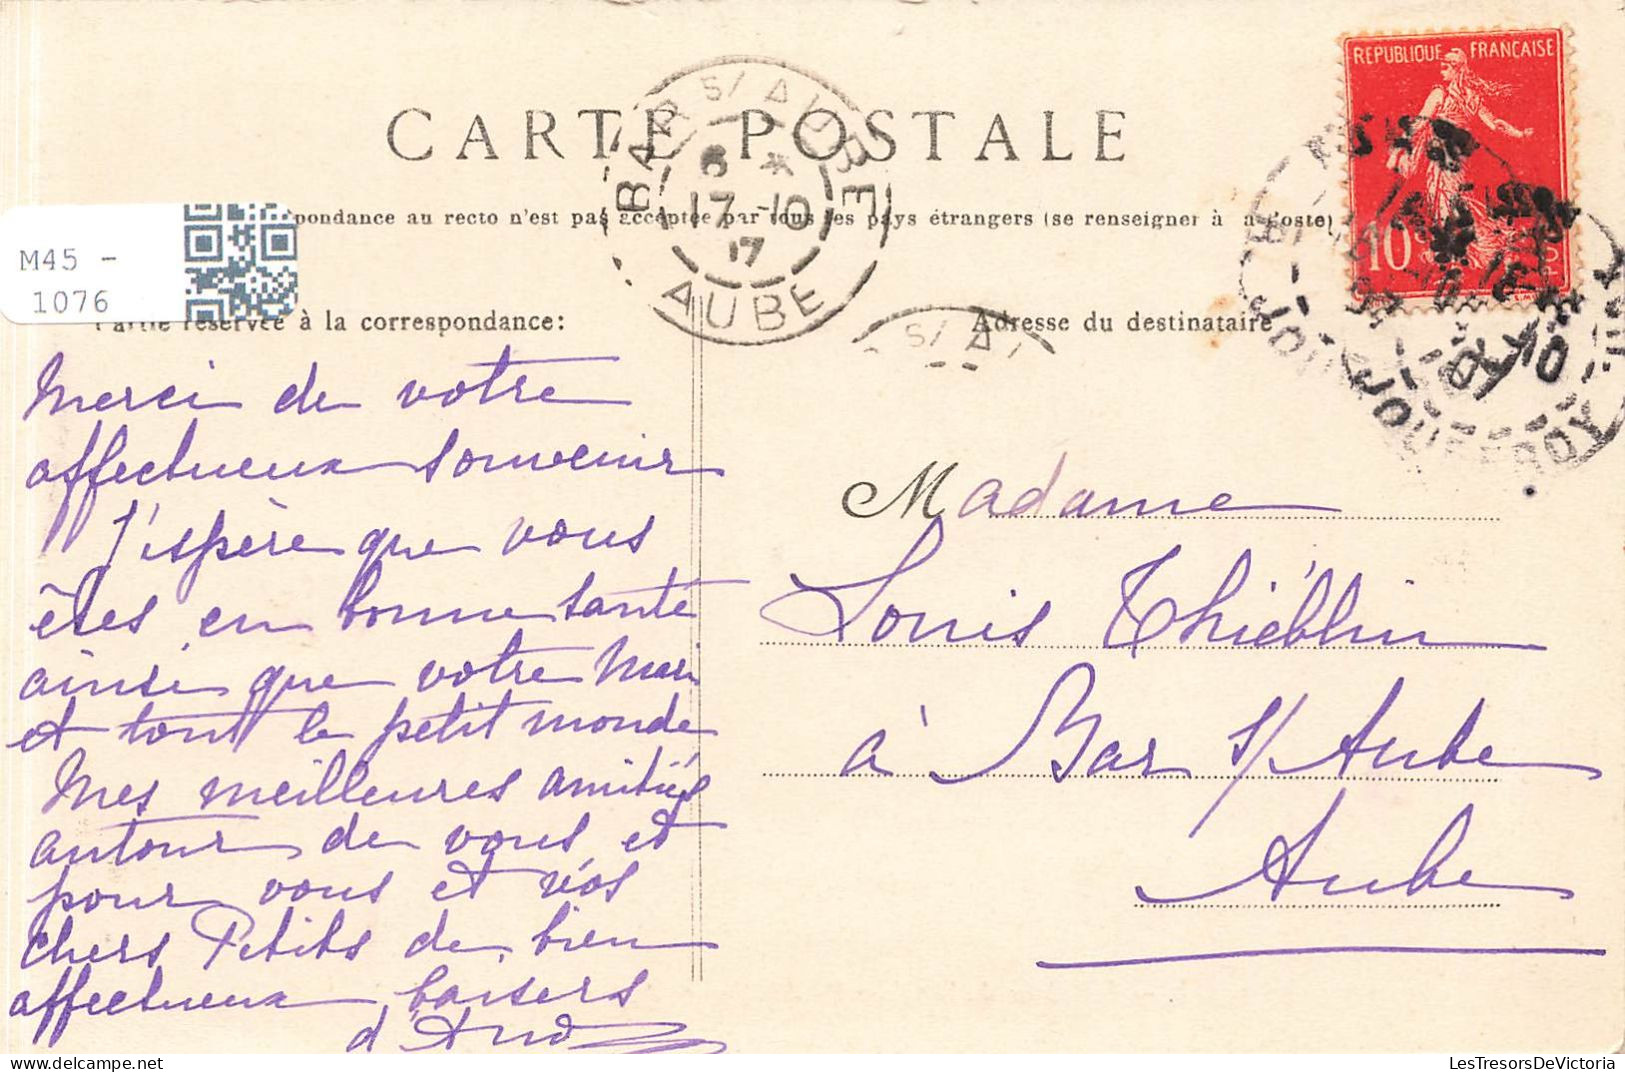 REPUBLIQUE FRANÇAISE
10
CARTE POSTALE
BAR S/ AUBE
8 *
17-10
17
AUBE
pondance au recto n'est pas acceptée par tous les pays étrangers (se renseigner à la poste)
M45 -
1076
Partie réservée à la correspondance:
Adresse du destinataire
S/ A
Merci de votre
affectueux souvenir
J'espère que vous
êtes en bonne santé
ainsi que votre mari
et tout le petit monde
Mes meilleures amitiés
autour de vous et
pour vous et vos
chers Petits de bien
affectueux baisers
Madame
Louis Thiéblin
à Bar s/ Aube
Aube
LesTresorsDeVictoria